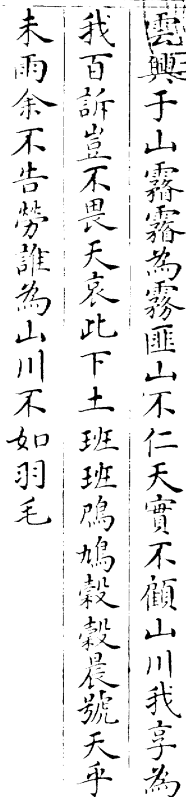 雲興于山霿霿為霧匪山不仁天實不顧山川我享為
我百訴豈不畏天哀此下土班班鳲鳩穀穀晨號天乎
未雨余不告勞誰為山川不如羽毛